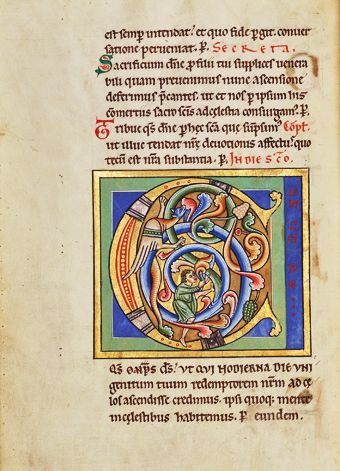 est semp intendat. et quo fide pergit. conver
satione perveniat. P. SECRETA.
Sacrificium dne p filii tui supplices venera
bili quam prevenimus nunc ascensione
deferimus pcantes. ut et nos p ipsum his
comertiis sacro scis adcelestia consurgam?. P.
Tribue qs dne p hec sca que supsim? COPL
ut illuc tendat nre devotionis affectu? quo
tecum est nra substantia. P. IN DIE STO
CONCEDE
QS OMPS DS. UT QUI HODIERNA DIE UNI
genitum tuum redemptorem nrm ad ce
los ascendisse credimus. ipsi quoq; mente
incelestibus habitemus. P eundem.